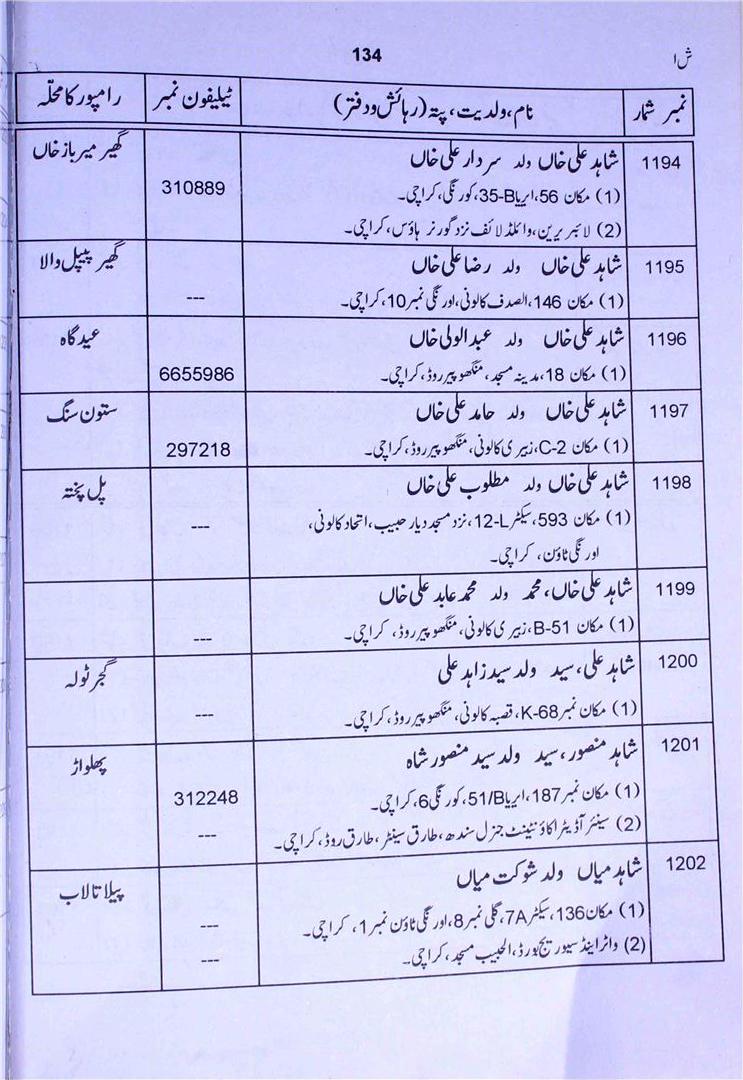 ش ا
134
نمبر شمار	نام، ولدیت، پتہ (رہائش و دفتر)	ٹیلیفون نمبر	رامپور کا محلّہ
1194	شاہد علی خاں ولد سردار علی خاں	گھیر میر باز خاں
(1) مکان 56، ایریا 35-B، کورنگی، کراچی۔	310889
(2) لائبریرین، وائلڈ لائف نزد گورنر ہاؤس، کراچی۔
1195	شاہد علی خاں ولد رضا علی خاں	گھیر پیپل والا
(1) مکان 146، الصدف کالونی، اورنگی نمبر 10، کراچی۔	---
1196	شاہد علی خاں ولد عبدالولی خاں	عید گاہ
(1) مکان 18، مدینہ مسجد، منگھوپیر روڈ، کراچی۔	6655986
1197	شاہد علی خاں ولد حامد علی خاں	ستون سنگ
(1) مکان C-2، زبیری کالونی، منگھوپیر روڈ، کراچی۔	297218
1198	شاہد علی خاں ولد مطلوب علی خاں	پل پختہ
(1) مکان 593، سیکٹر 12-L، نزد مسجد دیار حبیب، اتحاد کالونی،	---
اورنگی ٹاؤن، کراچی۔
1199	شاہد علی خاں، محمد ولد محمد عابد علی خاں
(1) مکان B-51، زبیری کالونی، منگھوپیر روڈ، کراچی۔	---
1200	شاہد علی، سید ولد سید زاہد علی	گجر ٹولہ
(1) مکان نمبر K-68، قصبہ کالونی، منگھوپیر روڈ، کراچی۔	---
1201	شاہد منصور، سید ولد سید منصور شاہ	پھلواڑ
(1) مکان نمبر 187، ایریا 51/B، کورنگی 6، کراچی۔	312248
(2) سینئر آڈیٹر اکاؤنٹینٹ جنرل سندھ، طارق سینٹر، طارق روڈ، کراچی۔	---
1202	شاہد میاں ولد شوکت میاں	پیلا تالاب
(1) مکان 136، سیکٹر 7A، گلی نمبر 8، اورنگی ٹاؤن نمبر 1، کراچی۔	---
(2) واٹر اینڈ سیوریج بورڈ، الحبیب مسجد، کراچی۔	---